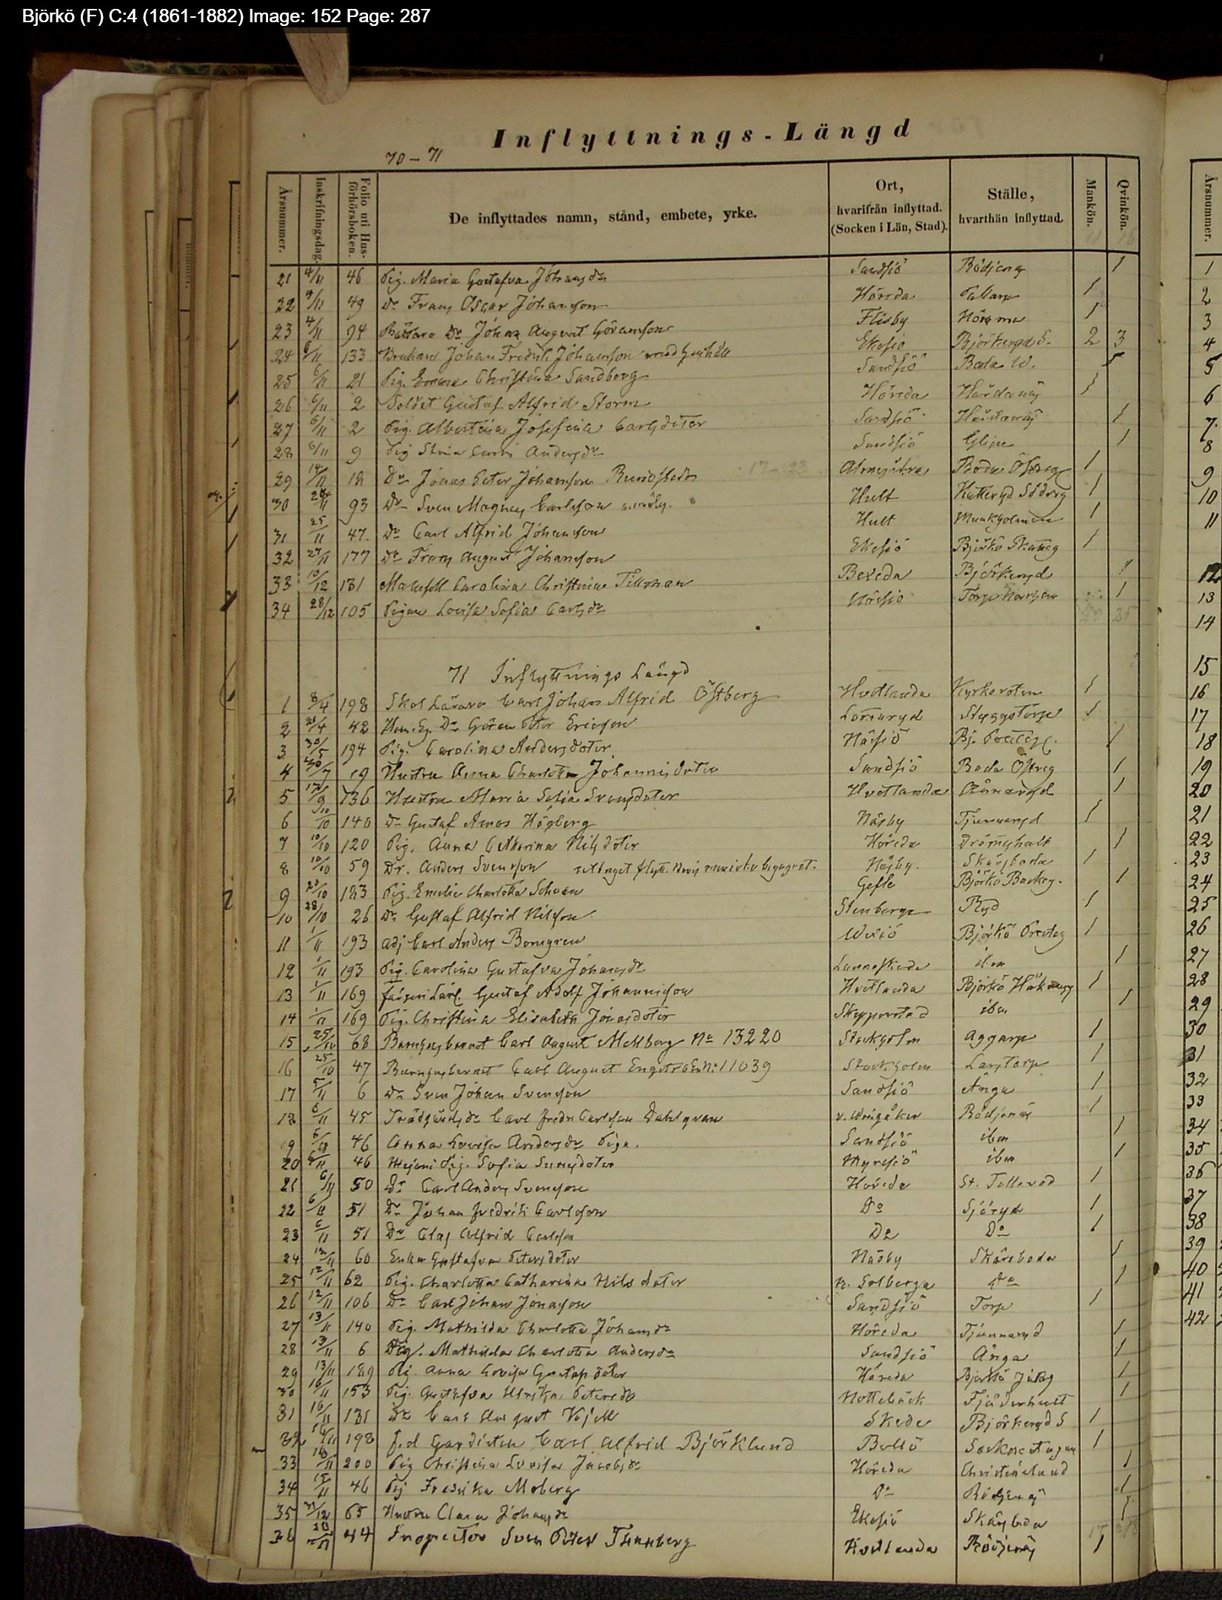 Björkö (F) C:4 (1861-1882) Image: 152 Page: 287
Inflyttnings-Längd
70-71
Årsnummer. Inskrifningsdag. Folio uti Husförhörsboken. De inflyttades namn, stånd, embete, yrke. Ort, hvarifrån inflyttad. (Socken i Län, Stad). Ställe, hvarthän inflyttad. Mankön. Qvinkön. Årsnummer.
21 4/11 46 Pig. Maria Gustafva Johansdr Sandsjö Rödjenäs 1
22 4/11 49 Dr Frans Oscar Johansson Höreda 1
23 4/11 94 Dr Johan August Göransson Flisby 1
24 133 Brukare Johan Fredrik Johansson med hushåll Eksjö Björkeryd S. 2 3
25 6/11 21 Pig. Emma Christina Sandberg Sandsjö Boda W. 1
26 6/11 2 Soldat Gustaf Alfrid Storm Höreda 1
27 6/11 2 Pig. Albertina Josefina Carlsdoter Sandsjö 1
28 6/11 9 Pig Andersdr Sandsjö 1
29 14/11 18 Dr Jonas Peter Johansson Almesåkra Boda Östreg 1
30 93 Dr Sven Magnus Carlsson Hult Södreg 1
31 25/11 47. Dr Carl Alfrid Johansson Hult Munkholmen 1
32 27/11 177 Dr Frans August Johansson Eksjö Björkö 1
33 10/12 131 Carolina Christina Tillman Bexeda Björkeryd 1
34 28/12 105 Pigan Lovisa Sofia Carlsdr Nässjö 1
71 Inflyttnings Längd
1 8/4 198 Skol Lärare Carl Johan Alfrid Östberg Hvetlanda Kyrkoroten 1
2 21/4 42 Hem. Eg. Dr Göran Peter Ericsson Lommaryd Styggstorp 1
3 30/5 194 Pig. Carolina Andersdoter Nässjö Bj. 1
4 30/7 19 Hustru Anna Charlotta Johannisdoter Sandsjö Boda Östreg 1
5 136 Hustru Maria Sofia Svensdoter Hvetlanda 1
6 140 Dr Gustaf Amos Högberg Näsby Tjunnaryd 1
7 10/10 120 Pig. Anna Catharina Nilsdoter Höreda Drömshult 1
8 10/10 59 Dr. Anders Svensson Näsby. Skärsboda 1
9 183 Pig. Emelie Charlotta Gefle Björkö 1
10 28/10 26 Dr Gustaf Alfrid Nilsson Stenberga Ryd 1
11 1/11 193 adj Carl Anders Borngren Wexiö Björkö Presteg 1
12 1/11 193 Pig. Carolina Gustafva Johansdr Lannaskede iben 1
13 1/11 169 Gustaf Adolf Johannisson Hvetlanda Björkö 1
14 1/11 169 Pig. Christina Elisabeth Jonasdoter iben 1
15 25/10 68 Barnhusbarnet Carl August Mellberg No 13220 Stockholm Aggarp 1
16 25/10 47 Barnhusbarnet Carl August No 11039 Stockholm 1
17 5/11 6 Dr Sven Johan Svensson Sandsjö Ånga 1
18 6/11 45 Trädgårdsdr Carl Fredr Carlsson Dahlgren v. Wingåker Rödjenäs 1
19 46 Anna Lovisa Andersdr Piga. Sandsjö iben 1
20 46 Mejeri Pig. Sofia Svensdoter Myresjö iben 1
21 6/11 50 Dr Carl Anders Svensson Höreda St. 1
22 6/11 51 Dr Johan Fredrik Carlsson Do Sjöryd 1
23 6/11 51 Dr Claes Alfrid Carlsson Do Do 1
24 12/11 60 Gustafva Petersdoter Näsby Skärsboda 1
25 12/11 62 Pig. Charlotta Catharina Nilsdoter n. Solberga Do 1
26 12/11 106 Dr Carl Johan Jonasson Sandsjö Torp 1
27 13/11 140 Pig. Mathilda Charlotta Johansdr Höreda Tjunnaryd 1
28 13/11 6 Pig. Mathilda Charlotta Andersdr Sandsjö Ånga 1
29 13/11 189 Pig. Anna Lovisa Gustafsdoter Höreda Björkö 1
30 16/11 153 Pig. Gustafva Ulrika Petersdr Nottebäck 1
31 16/11 131 Dr Carl August Skede Björkeryd S 1
32 193 f.d. Gardisten Carl Alfrid Björklund Bellö Sockenstugan 1
33 200 Pig Christina Lovisa Jacobsdr Höreda Christinelund 1
34 46 Pig Fredrika Moberg Do Rödjenäs 1
35 65 Hustru Clara Johansdr Eksjö Skärsboda 1
36 44 Inspector Sven Peter Thunberg Hvetlanda Rödjenäs 1
1
2
3
4
5
6
7
8
9
10
11
12
13
14
15
16
17
18
19
20
21
22
23
24
25
26
27
28
29
30
31
32
33
34
35
36
37
38
39
40
41
42